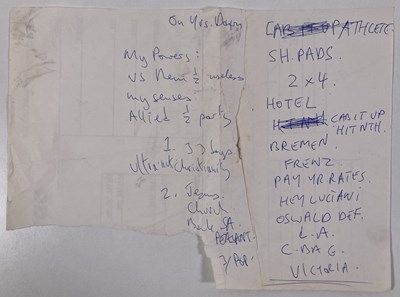 On Yrs. Days
My Powers:
vs Them ½ useless
my senses
Allied ½ party
1. 3 days
ultra-int christianity
2. Jesus
Church
Back SA.
PEASANT.
3/ POP
CAB IT UP ATHLETE
SH. PADS.
2 × 4.
HOTEL
CAB IT UP
HIT NTH.
BREMEN.
FRENZ
PAY YR RATES.
HEY LUCIANI
OSWALD DEF.
L.A.
C. BAG.
VICTORIA.